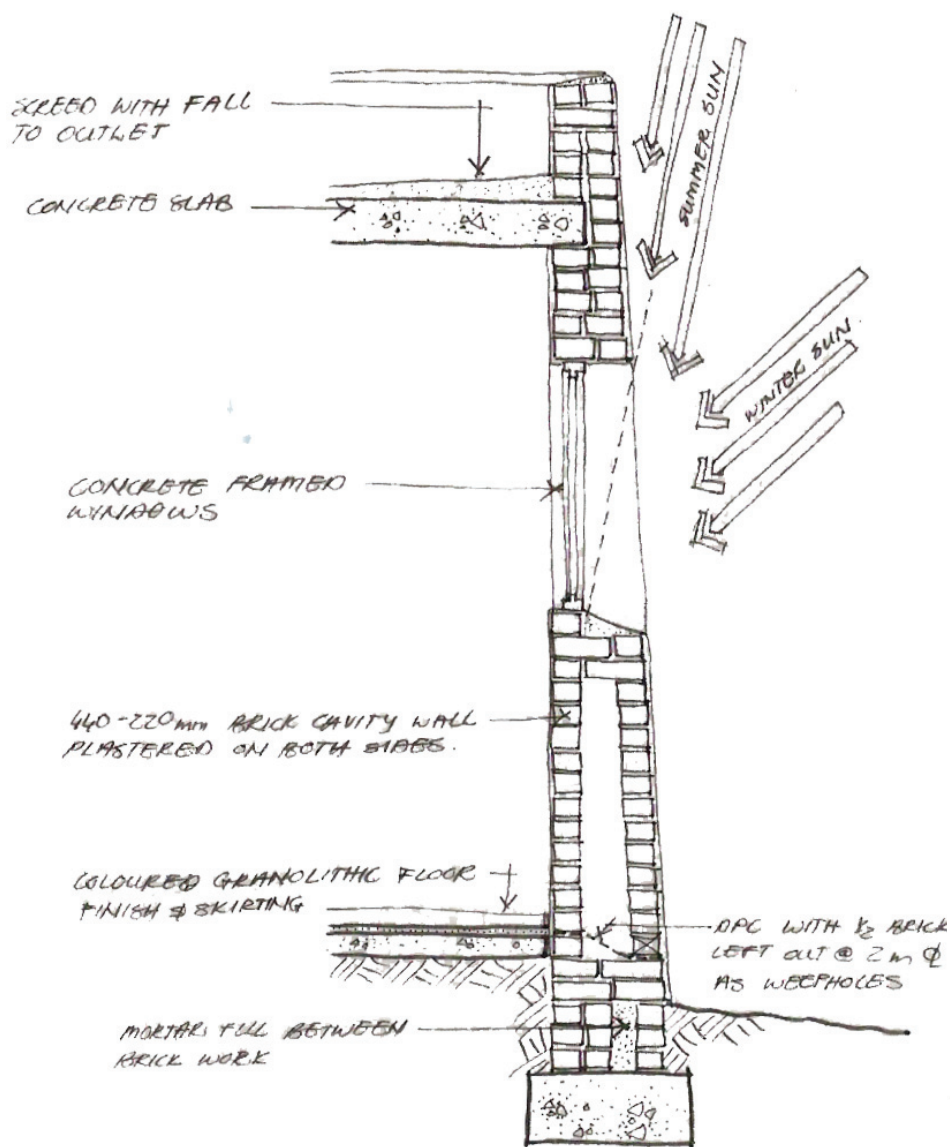 SCREED WITH FALL
TO OUTLET
CONCRETE SLAB
SUMMER SUN
WINTER SUN
CONCRETE FRAMED
WINDOWS
440-220mm BRICK CAVITY WALL
PLASTERED ON BOTH SIDES.
COLOURED GRANOLITHIC FLOOR
FINISH & SKIRTING
DPC WITH ½ BRICK
LEFT OUT @ 2m ȼ
AS WEEPHOLES
MORTAR FILL BETWEEN
BRICK WORK